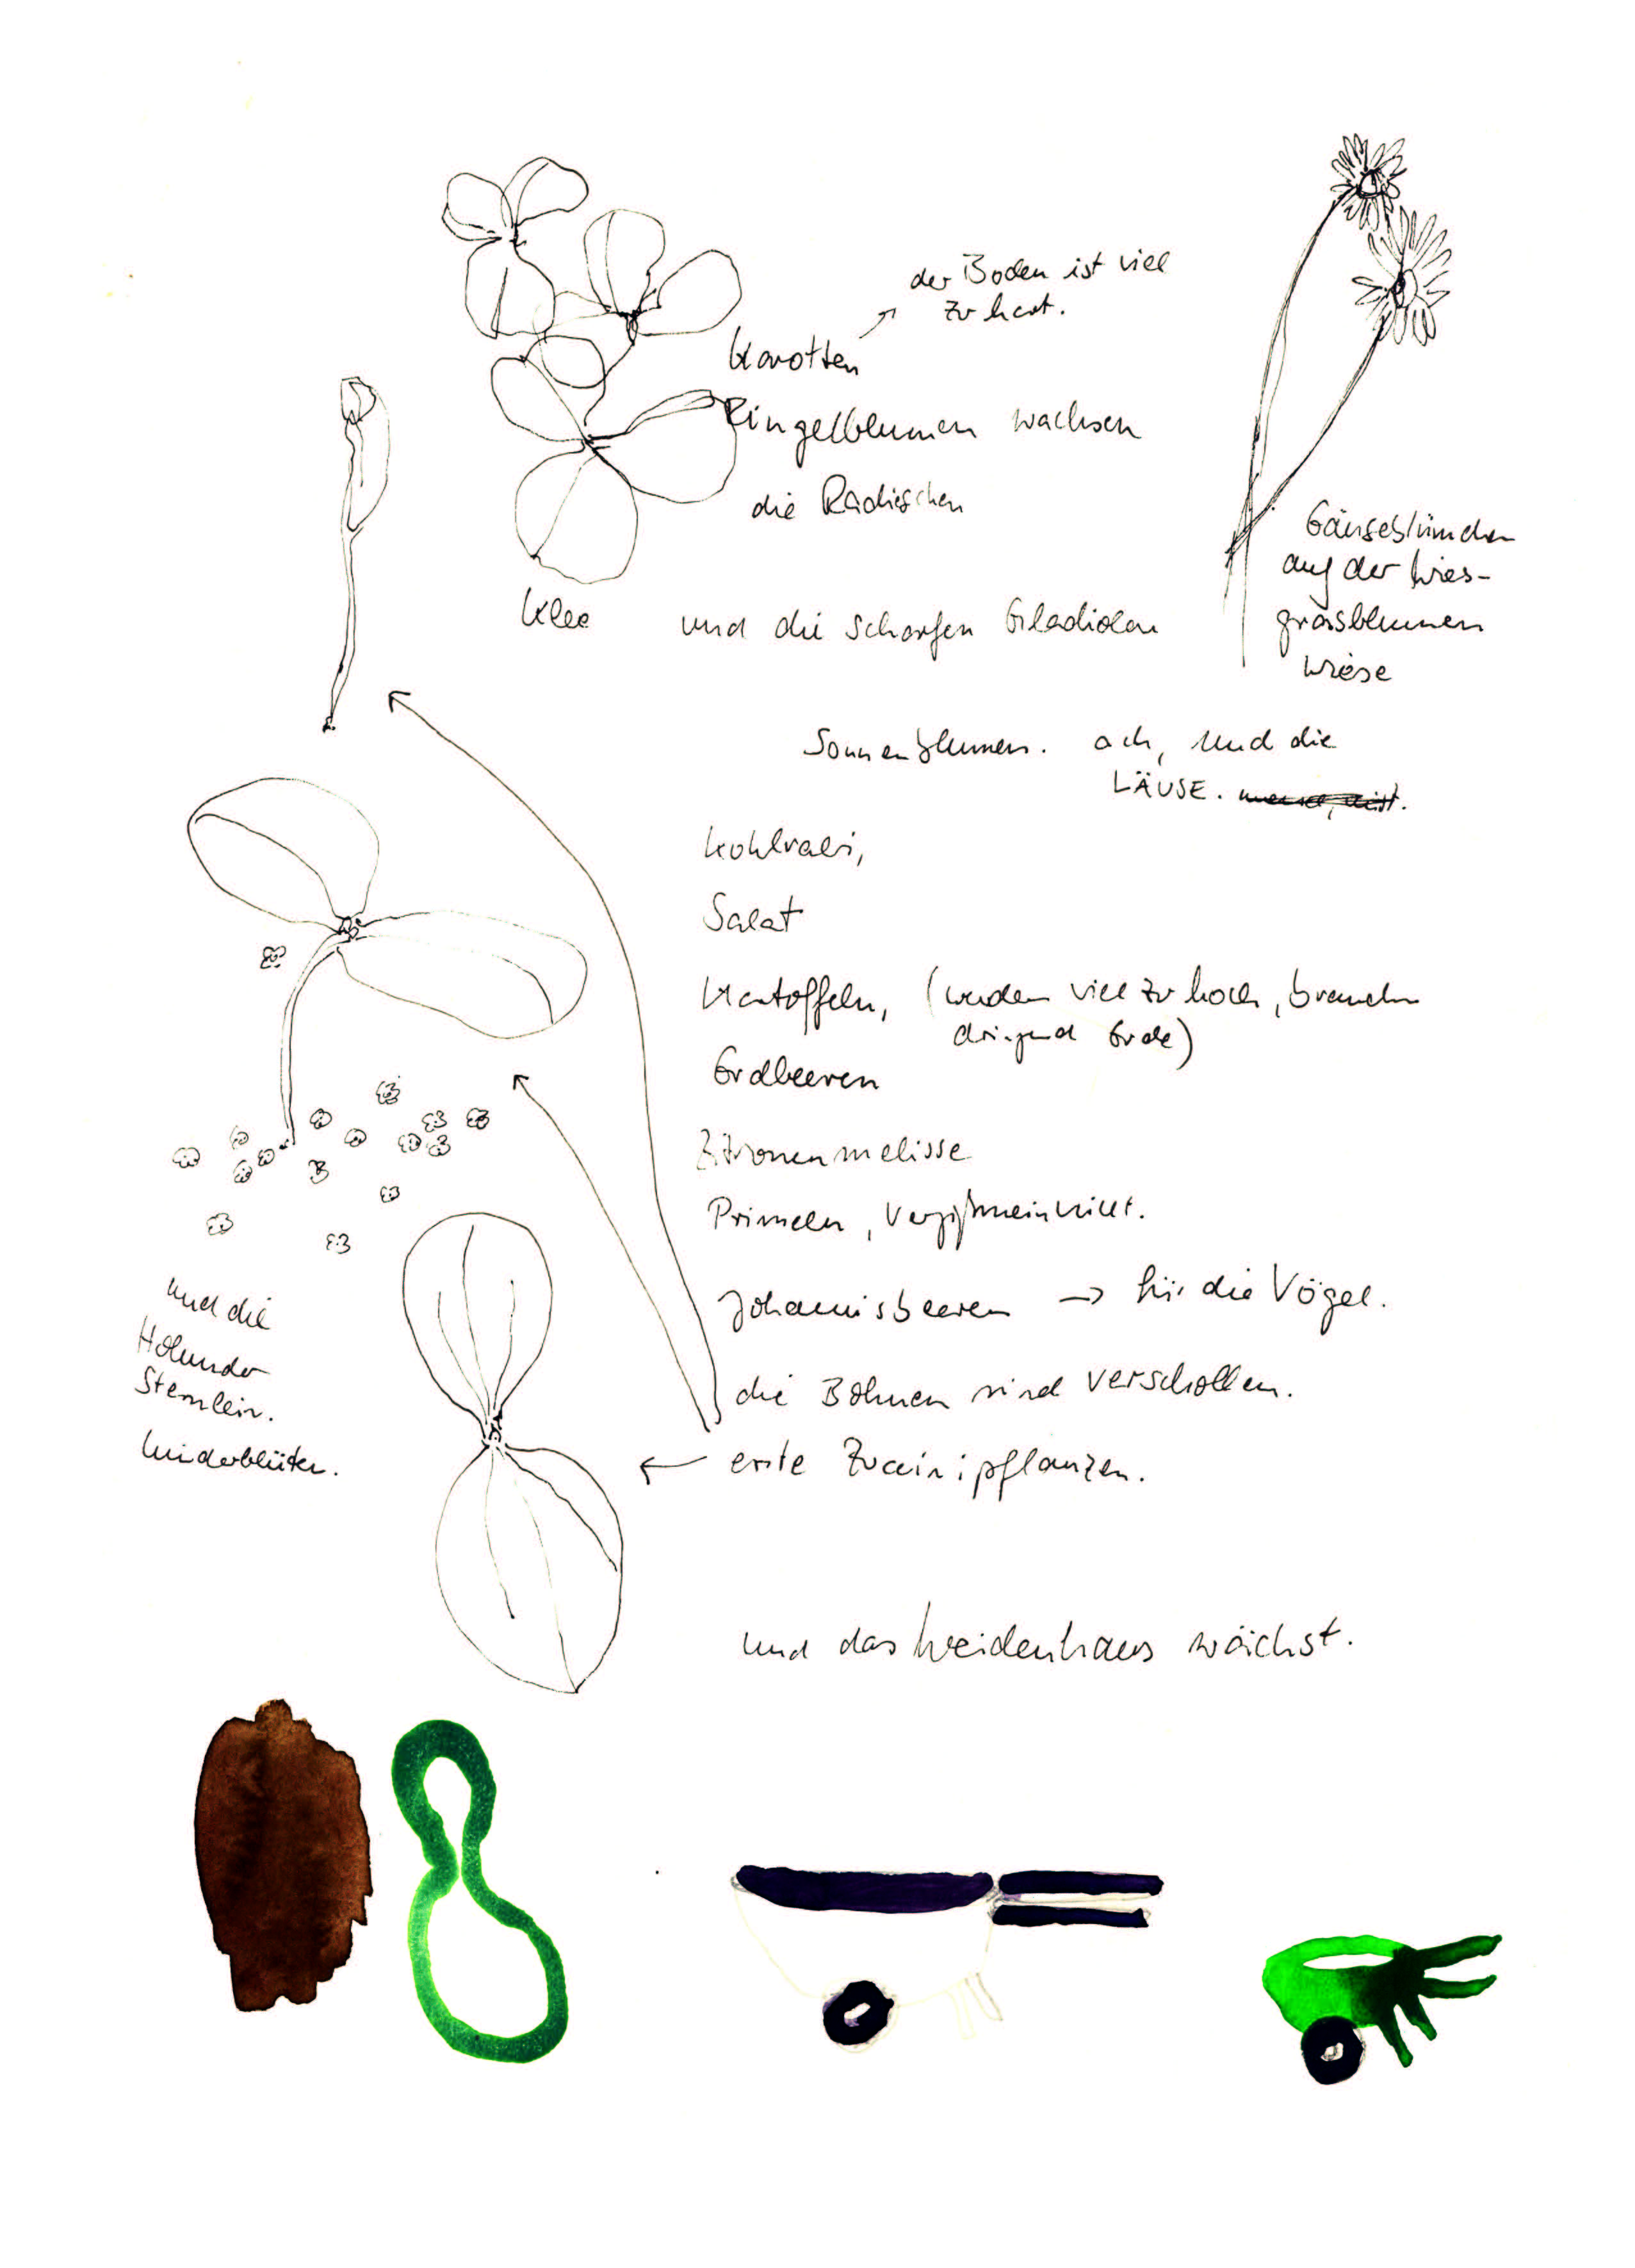 der Boden ist viel
zu hart.
Karotten
Ringelblumen wachsen
die Radieschen
Klee
und die scharfen Gladiolen
Gänseblümchen
auf der Wies-
grasblumen
wiese
Sonnenblumen. ach, und die
LÄUSE.
Kohlrabi,
Salat
Kartoffeln, (werden viel zu hoch, brauchen
dringend Erde)
Erdbeeren
Zitronenmelisse
Primeln, Vergißmeinnicht.
Johannisbeeren → für die Vögel.
die Bohnen sind verschollen.
erste Zuccinipflanzen.
und die
Holunder
Sternlein.
lunderblüten.
und das Weidenhaus wächst.